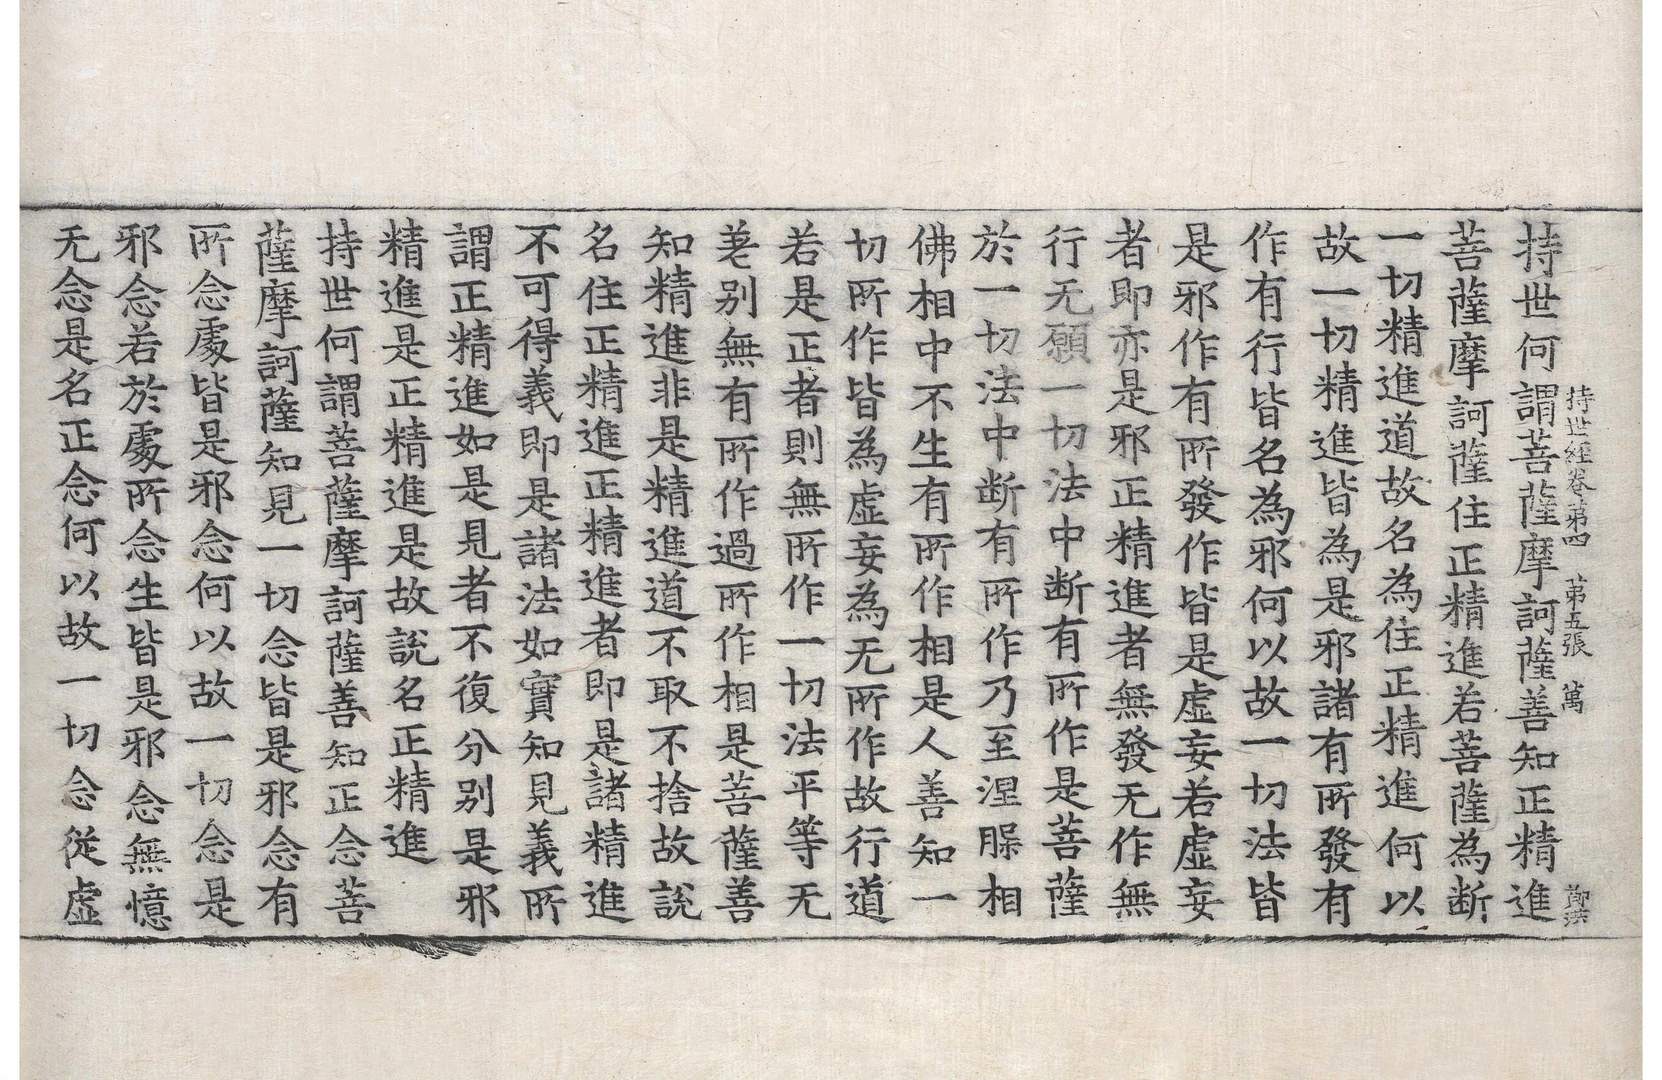 持世經卷第四　第五張　萬　鄭洪
持世何謂菩薩摩訶薩善知正精進
菩薩摩訶薩住正精進若菩薩為断
一切精進道故名為住正精進何以
故一切精進皆為是邪諸有所發有
作有行皆名為邪何以故一切法皆
是邪作有所發作皆是虛妄若虛妄
者即亦是邪正精進者無發无作無
行无願一切法中断有所作是菩薩
於一切法中断有所作乃至涅𦙾相
佛相中不生有所作相是人善知一
切所作皆為虛妄為无所作故行道
若是正者則無所作一切法平等无
差别無有所作過所作相是菩薩善
知精進非是精進道不取不捨故說
名住正精進正精進者即是諸精進
不可得義即是諸法如實知見義所
謂正精進如是見者不復分别是邪
精進是正精進是故說名正精進
持世何謂菩薩摩訶薩善知正念菩
薩摩訶薩知見一切念皆是邪念有
所念處皆是邪念何以故一切念是
邪念若於處所念生皆是邪念無憶
无念是名正念何以故一切念從虛